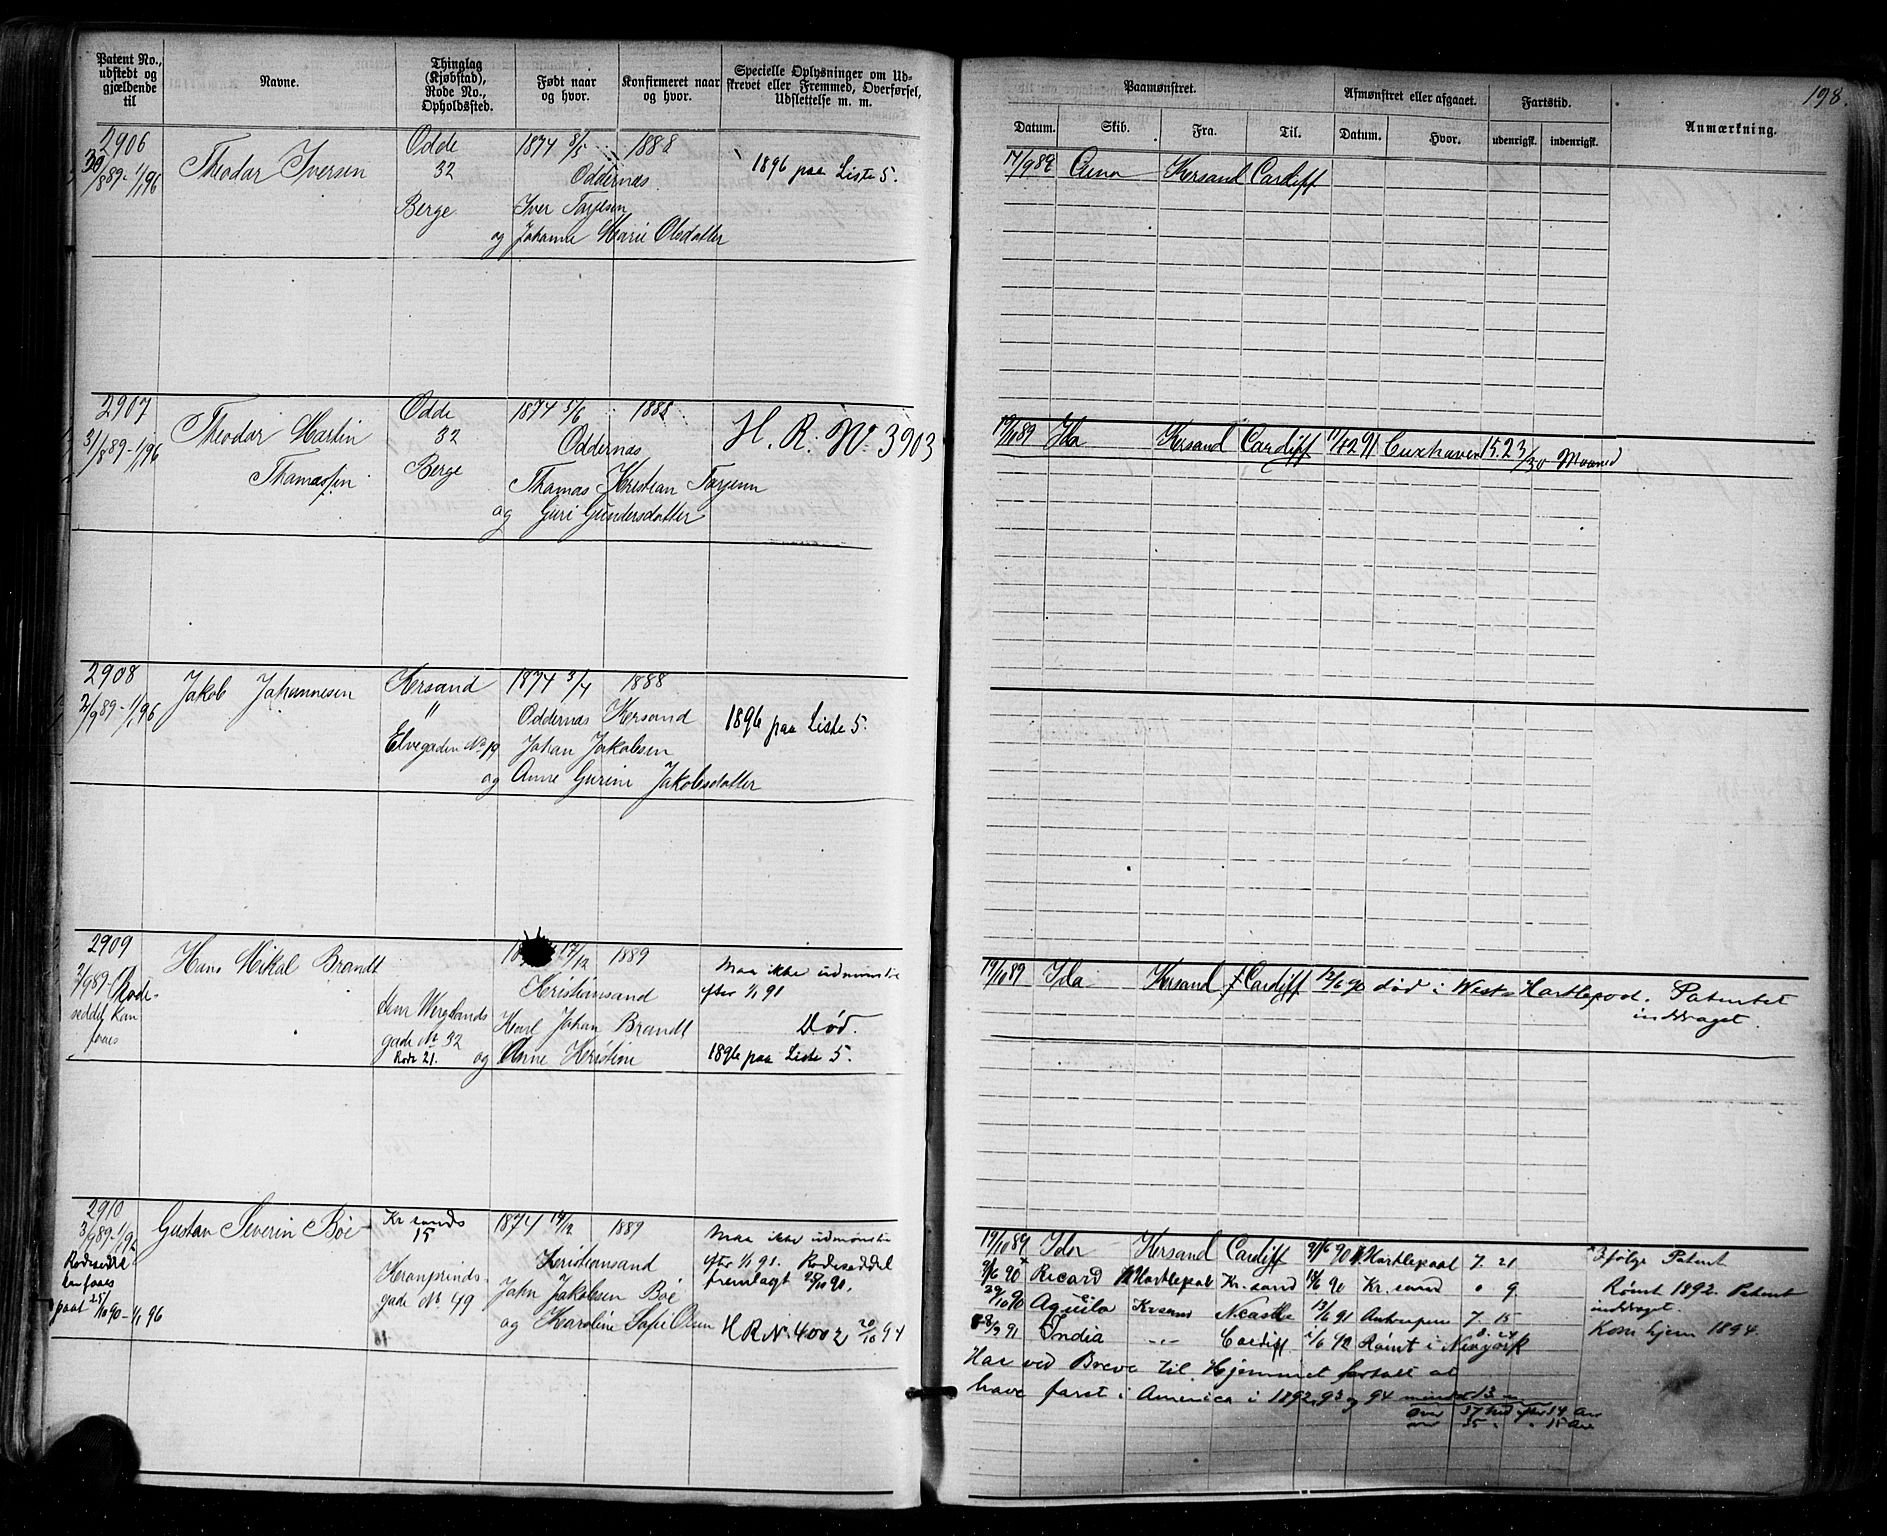 Patent No.,
udstedt og
gjældende
til
Navne.
Thinglag
(Kjøbstad),
Rode No.,
Opholdssted.
Født naar
og hvor.
Konfirmeret naar
og hvor.
Specielle Oplysninger om Ud-
skrevet eller Fremmed, Overførsel,
Udslettelse m. m.
Paamønstret.
Afmønstret eller afgaaet.
Fartstid.
198.
Datum.
Skib.
Fra.
Til.
Datum.
Hvor.
udenrigsk.
indenrigsk.
Anmærkning.
2906
30/8 89 - 1/1 96
Theodor Iversen
Odde
32
Berge
1874 8/5
1888
Oddernæs
Iver Torjesen
og Johanne Marie Olsdatter
1896 paa Liste 5.
17/9 89 Kersand Cardiff
2907
31/8 89 - 1/1 96
Theodor Martin
Thomassen
Odde
32
Berge
1874 5/6
1888
Oddernæs
Thomas Kristian Torjesen
og Guri Gundersdatter
H. R. No. 3903
19/10 89 Ida Kersand Cardiff 11/2 91 Cuxhaven 15.23/30 Maaned
2908
2/9 89 - 1/1 96
Jakob Johannesen
Kersand
"
Elvegaden No 19
1874 3/4
1888
Oddernæs Kersand
Johan Jakobsen
og Anne Gurine Jakobsdatter
1896 paa Liste 5.
2909
2/9 89 - Rode-
seddel kan
faaes
Hans Mikal Brandt
Wergelands
gade No 32
Rode 21.
17/12
1889
Kristiansand
Karl Johan Brandt
og Anne Kristine
Maa ikke udmønstres
efter 1/1 91
Død.
1896 paa Liste 5.
19/10 89 Ida Kersand Cardiff 12/6 90 død i West-Hartlepool. Patentet
inddraget.
2910
3/9 89 - 1/1 92
Rodeseddel
kan faaes
paat 25/10 90 - 1/1 96
Gustav Severin Bøe
Kr sands
15
Kronprinds-
gade No 49
1874 19/12
1889
Kristiansand
John Jakobsen Bøe
og Karoline Sofie Olsen
Maa ikke udmønstres
efter 1/1 91. Rodeseddel
fremlagt 25/10 90.
H R No 4002 20/10 94
19/10 89 Ida Kersand Cardiff 9/6 90 W Hartlepool 7. 21
9/6 90 Ricard W Hartlepool Kr. sand 18/6 90 Kr. sand " 9
29/10 90 Aquila Krsand NCastle 13/6 91 Antwerpen 7 15
8/9 91 India -"- Cardiff 1/6 92 Rømt i Newyork
Ifølge Patent
Rømt 1892. Patent
inddraget.
Kom hjem 1894
Har ved Breve til Hjemmet fortalt at
have faret i America i 1892, 93 og 94 mindst 13 m
over 37 Md efter 14 Aar
35 " " 15 Aar